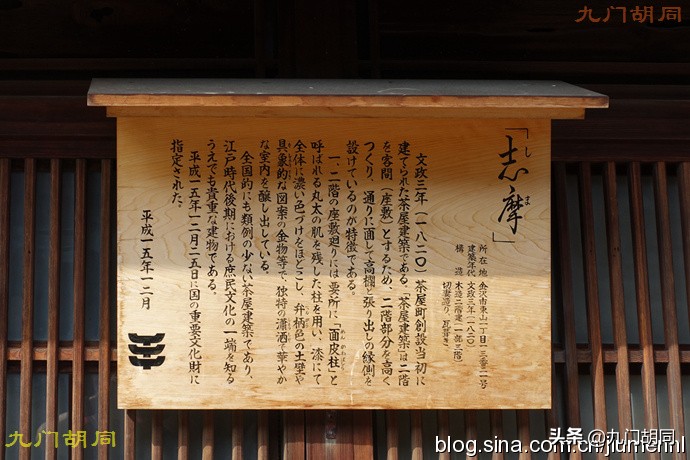 九门胡同
「志摩」
しま
所在地 金沢市東山一丁目一三番二一号
建築年代 文政三年(一八二〇)
構造 木造二階建(一部三階)
切妻造り、瓦葺き
文政三年(一八二〇)茶屋町創設当初に
建てられた茶屋建築である。「茶屋建築」は二階
を客間(座敷)とするため、二階部分を高く
つくり、通りに面して高欄と張り出しの縁側を
設けているのが特徴である。
一、二階の座敷廻りには要所に「面皮柱」と
めんかわばしら
呼ばれる丸太の肌を残した柱を用い、漆にて
全体に濃い色づけをほどこし、弁柄色の土壁や
具象的な図案の金物等で、独特の瀟洒で華やか
な室内を醸し出している。
全国的にも類例の少ない茶屋建築であり、
江戸時代後期における庶民文化の一端を知る
うえでも貴重な建物である。
平成一五年一二月二五日に国の重要文化財に
指定された。
平成一五年一二月
九门胡同
头条 @九门胡同
blog.sina.com.cn/jiumenhl